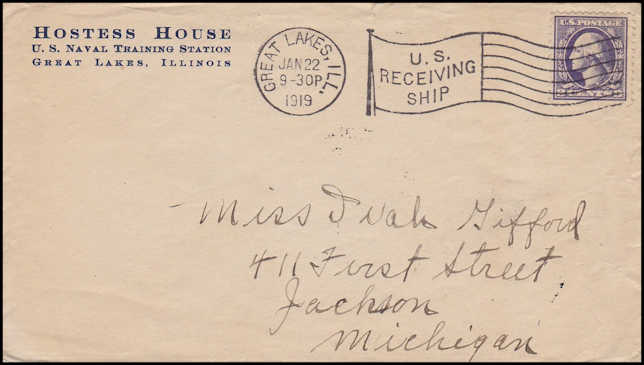 HOSTESS HOUSE
U. S. NAVAL TRAINING STATION
GREAT LAKES, ILLINOIS
GREAT LAKES, ILL.
JAN 22
9-30P
1919
U. S.
RECEIVING
SHIP
U.S. POSTAGE
Miss Ivah Gifford
411 First Street
Jackson
Michigan